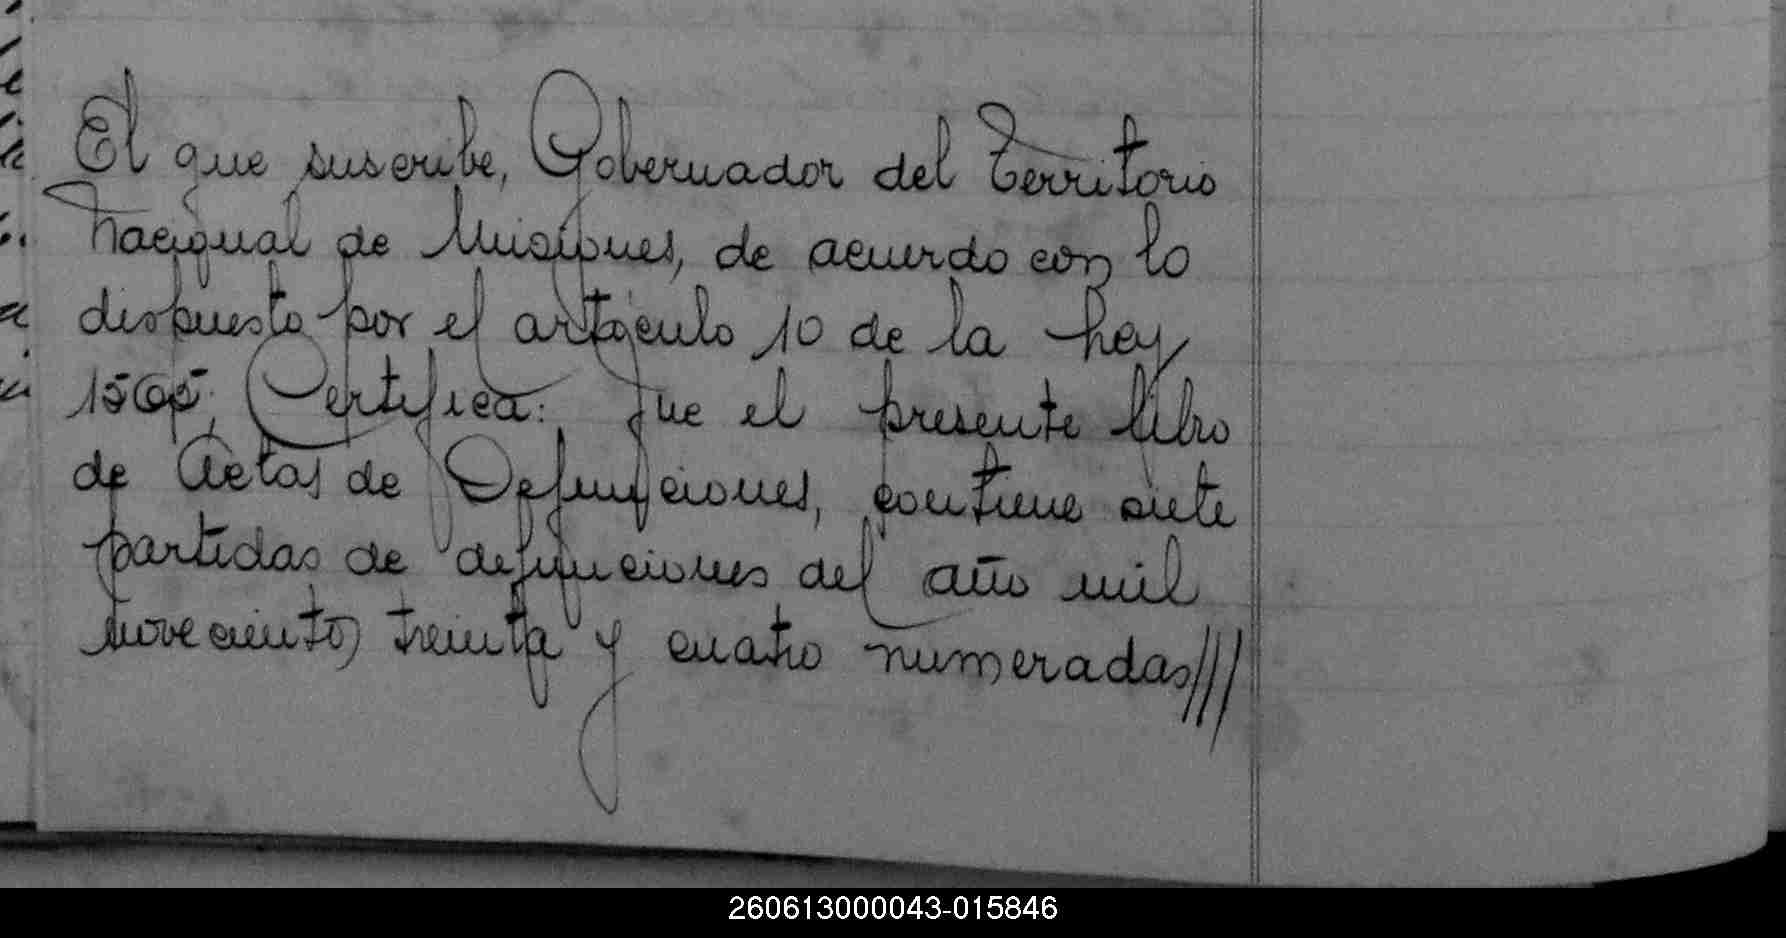 El que suscribe, Gobernador del Territorio
Nacional de Misiones, de acuerdo con lo
dispuesto por el artículo 10 de la Ley
1565, Certifica: Que el presente libro
de Actas de Defunciones, contiene siete
partidas de defunciones del año mil
novecientos treinta y cuatro numeradas///
260613000043-015846